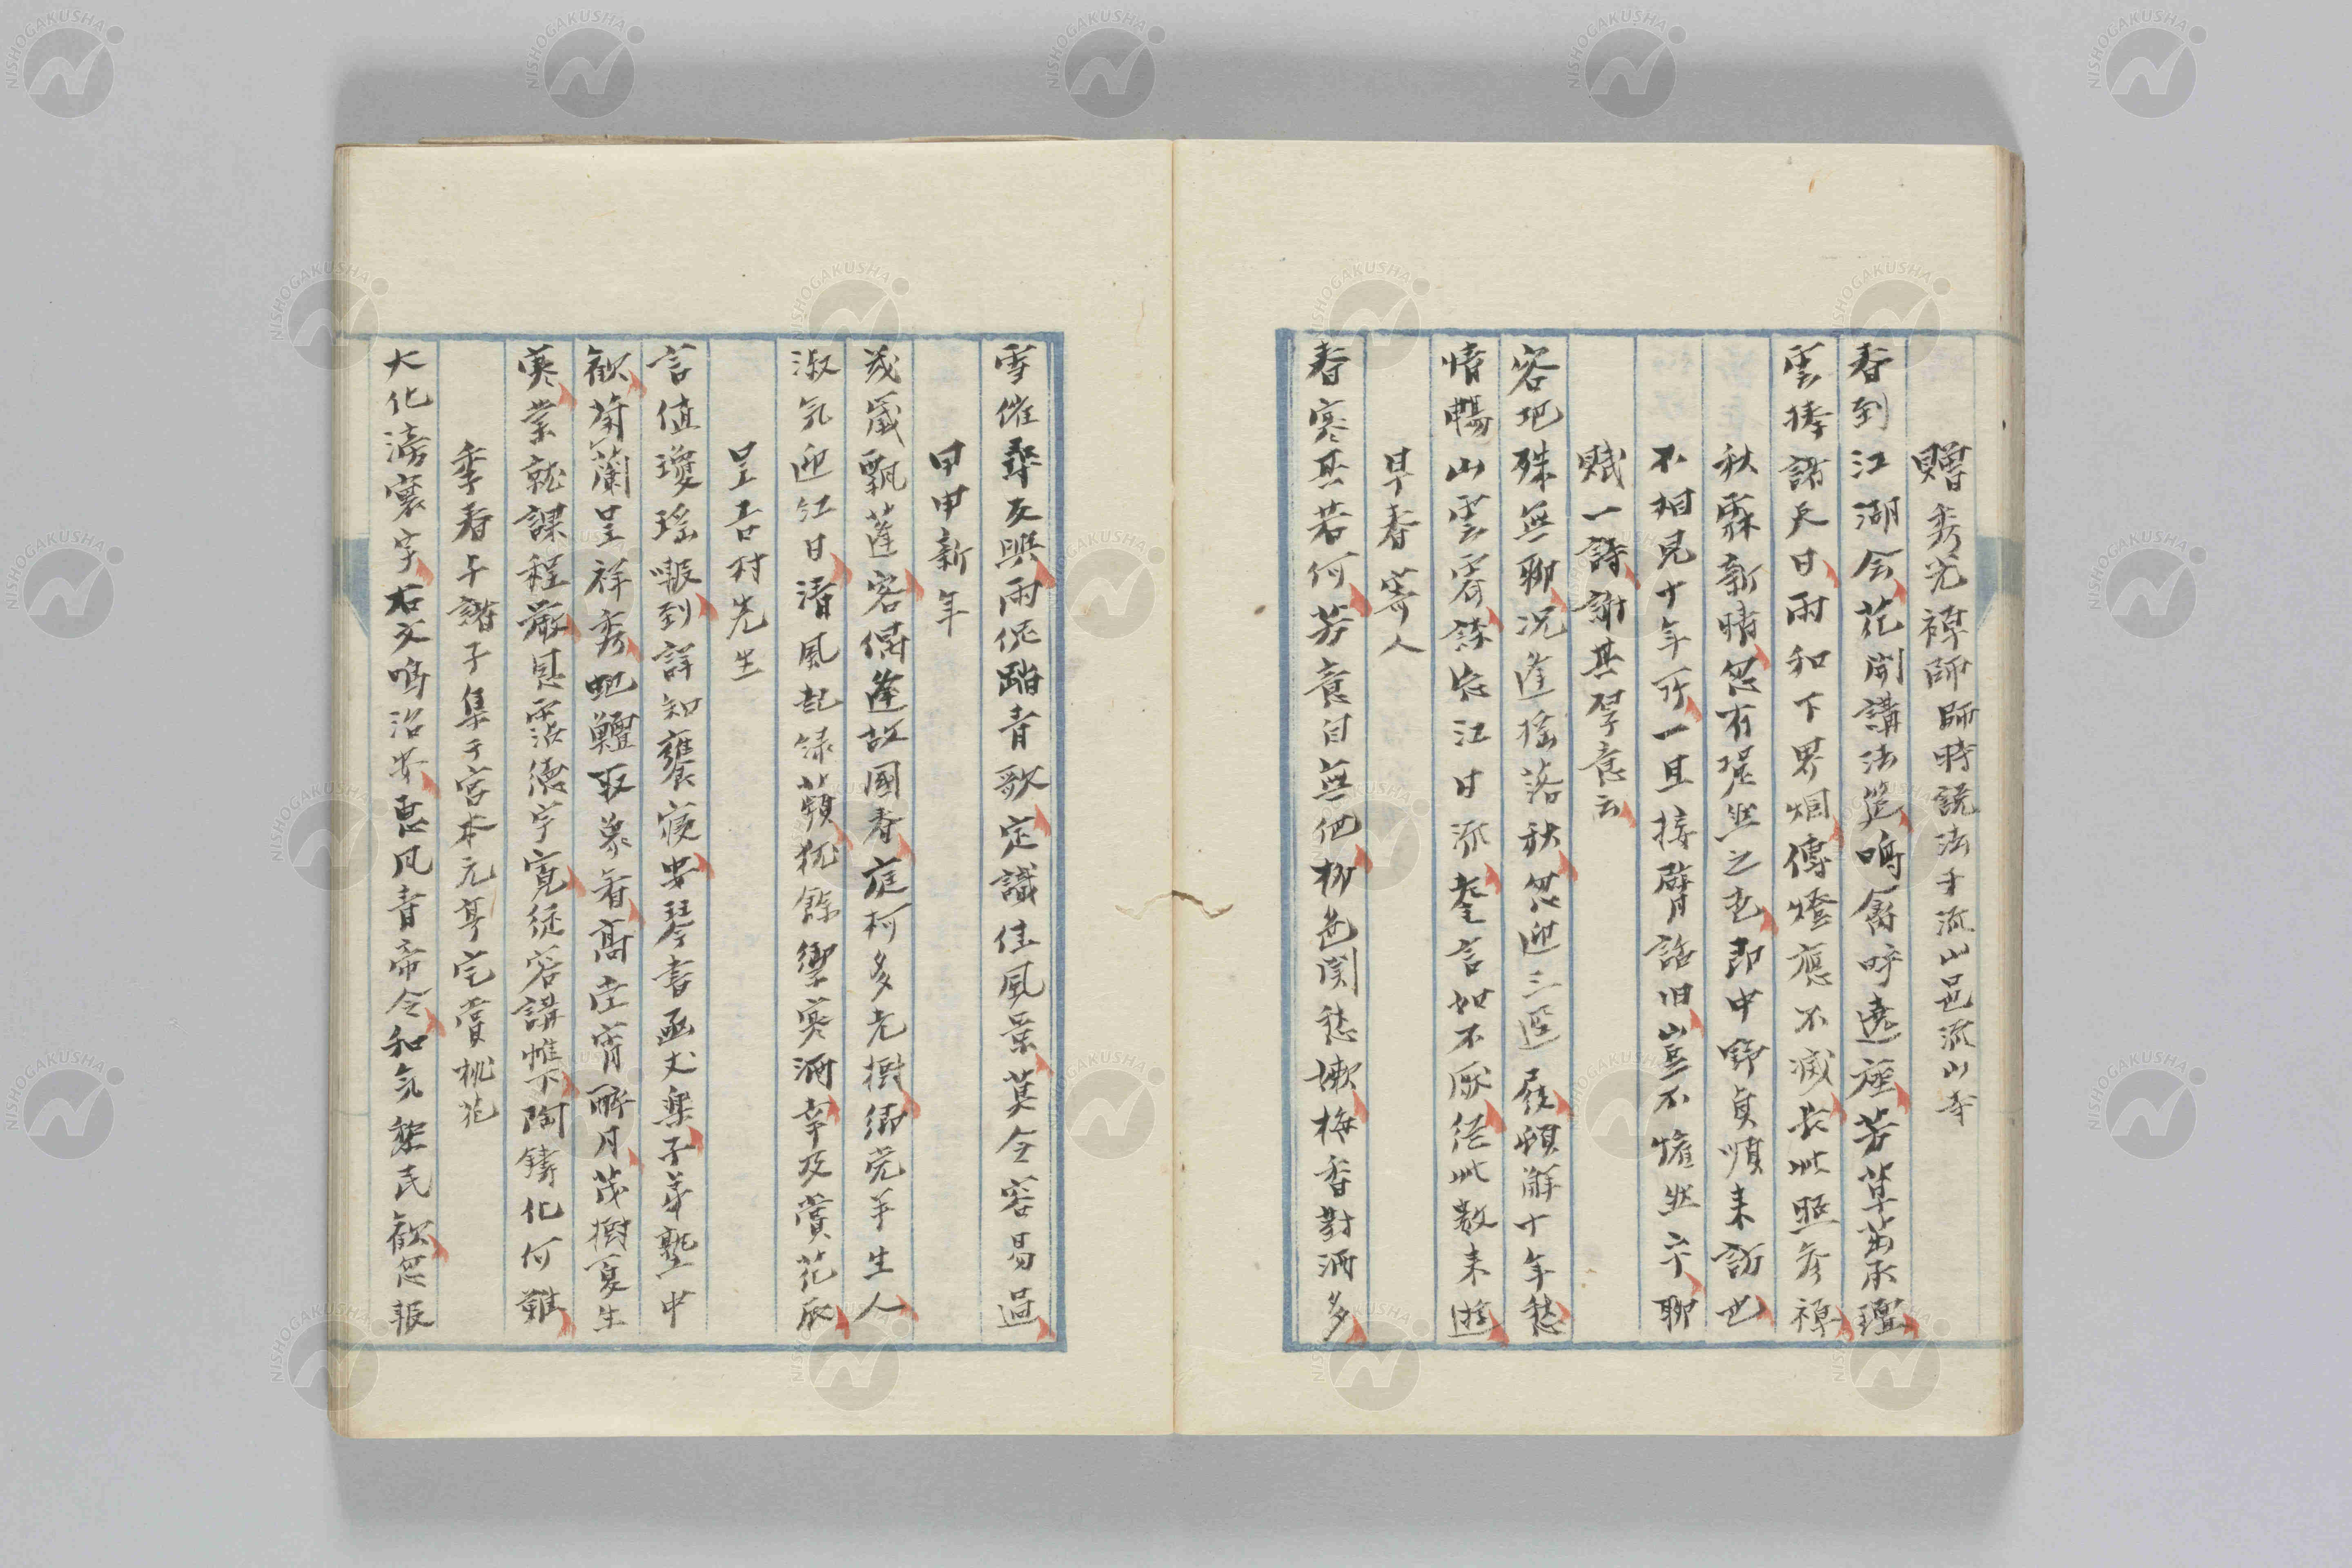 贈秀光禅師師時説法于流山邑流山寺
春到江湖会花開講法筵鳴禽呼遶座芳草茁承壇
雲捧諸天日雨和下界烟傳燈應不滅長此照参禅
秋霖新晴忽有跫然之声即中野貞順来訪也
不相見十年所一旦接臂話旧豈不愉然乎聊
賦一詩謝其厚意云
客地殊無聊況逢揺落秋忽迎三逕屐頓解十年愁
情暢山雲霽談忘江日流奎言如不厭従此数来遊
早春寄人
春寒其若何芳意自無他柳色関愁嫩梅香對酒多
雪催尋友興雨促踏青歌定識佳風景莫令容易過
甲申新年
幾歳飄蓬客偶逢故國春庭柯多老樹郷党半生人
淑気迎紅日清風起緑蘋猶餘禦寒酒幸及賞花辰
呈吉村先生
言値瓊瑶報到詳知饔寝安琴書函丈楽子弟塾中
歓蘭呈祥秀虵鱣取象看高空宵酔月茂樹夏生
寒業就課程厳恩霑徳宇寛従容講帷下陶鋳化何難
季春与諸子集于宮本元亨宅賞桃花
大化滂寰宇右文鳴治安恵風青帝令和気黎民歓忽報
NISHOGAKUSHA